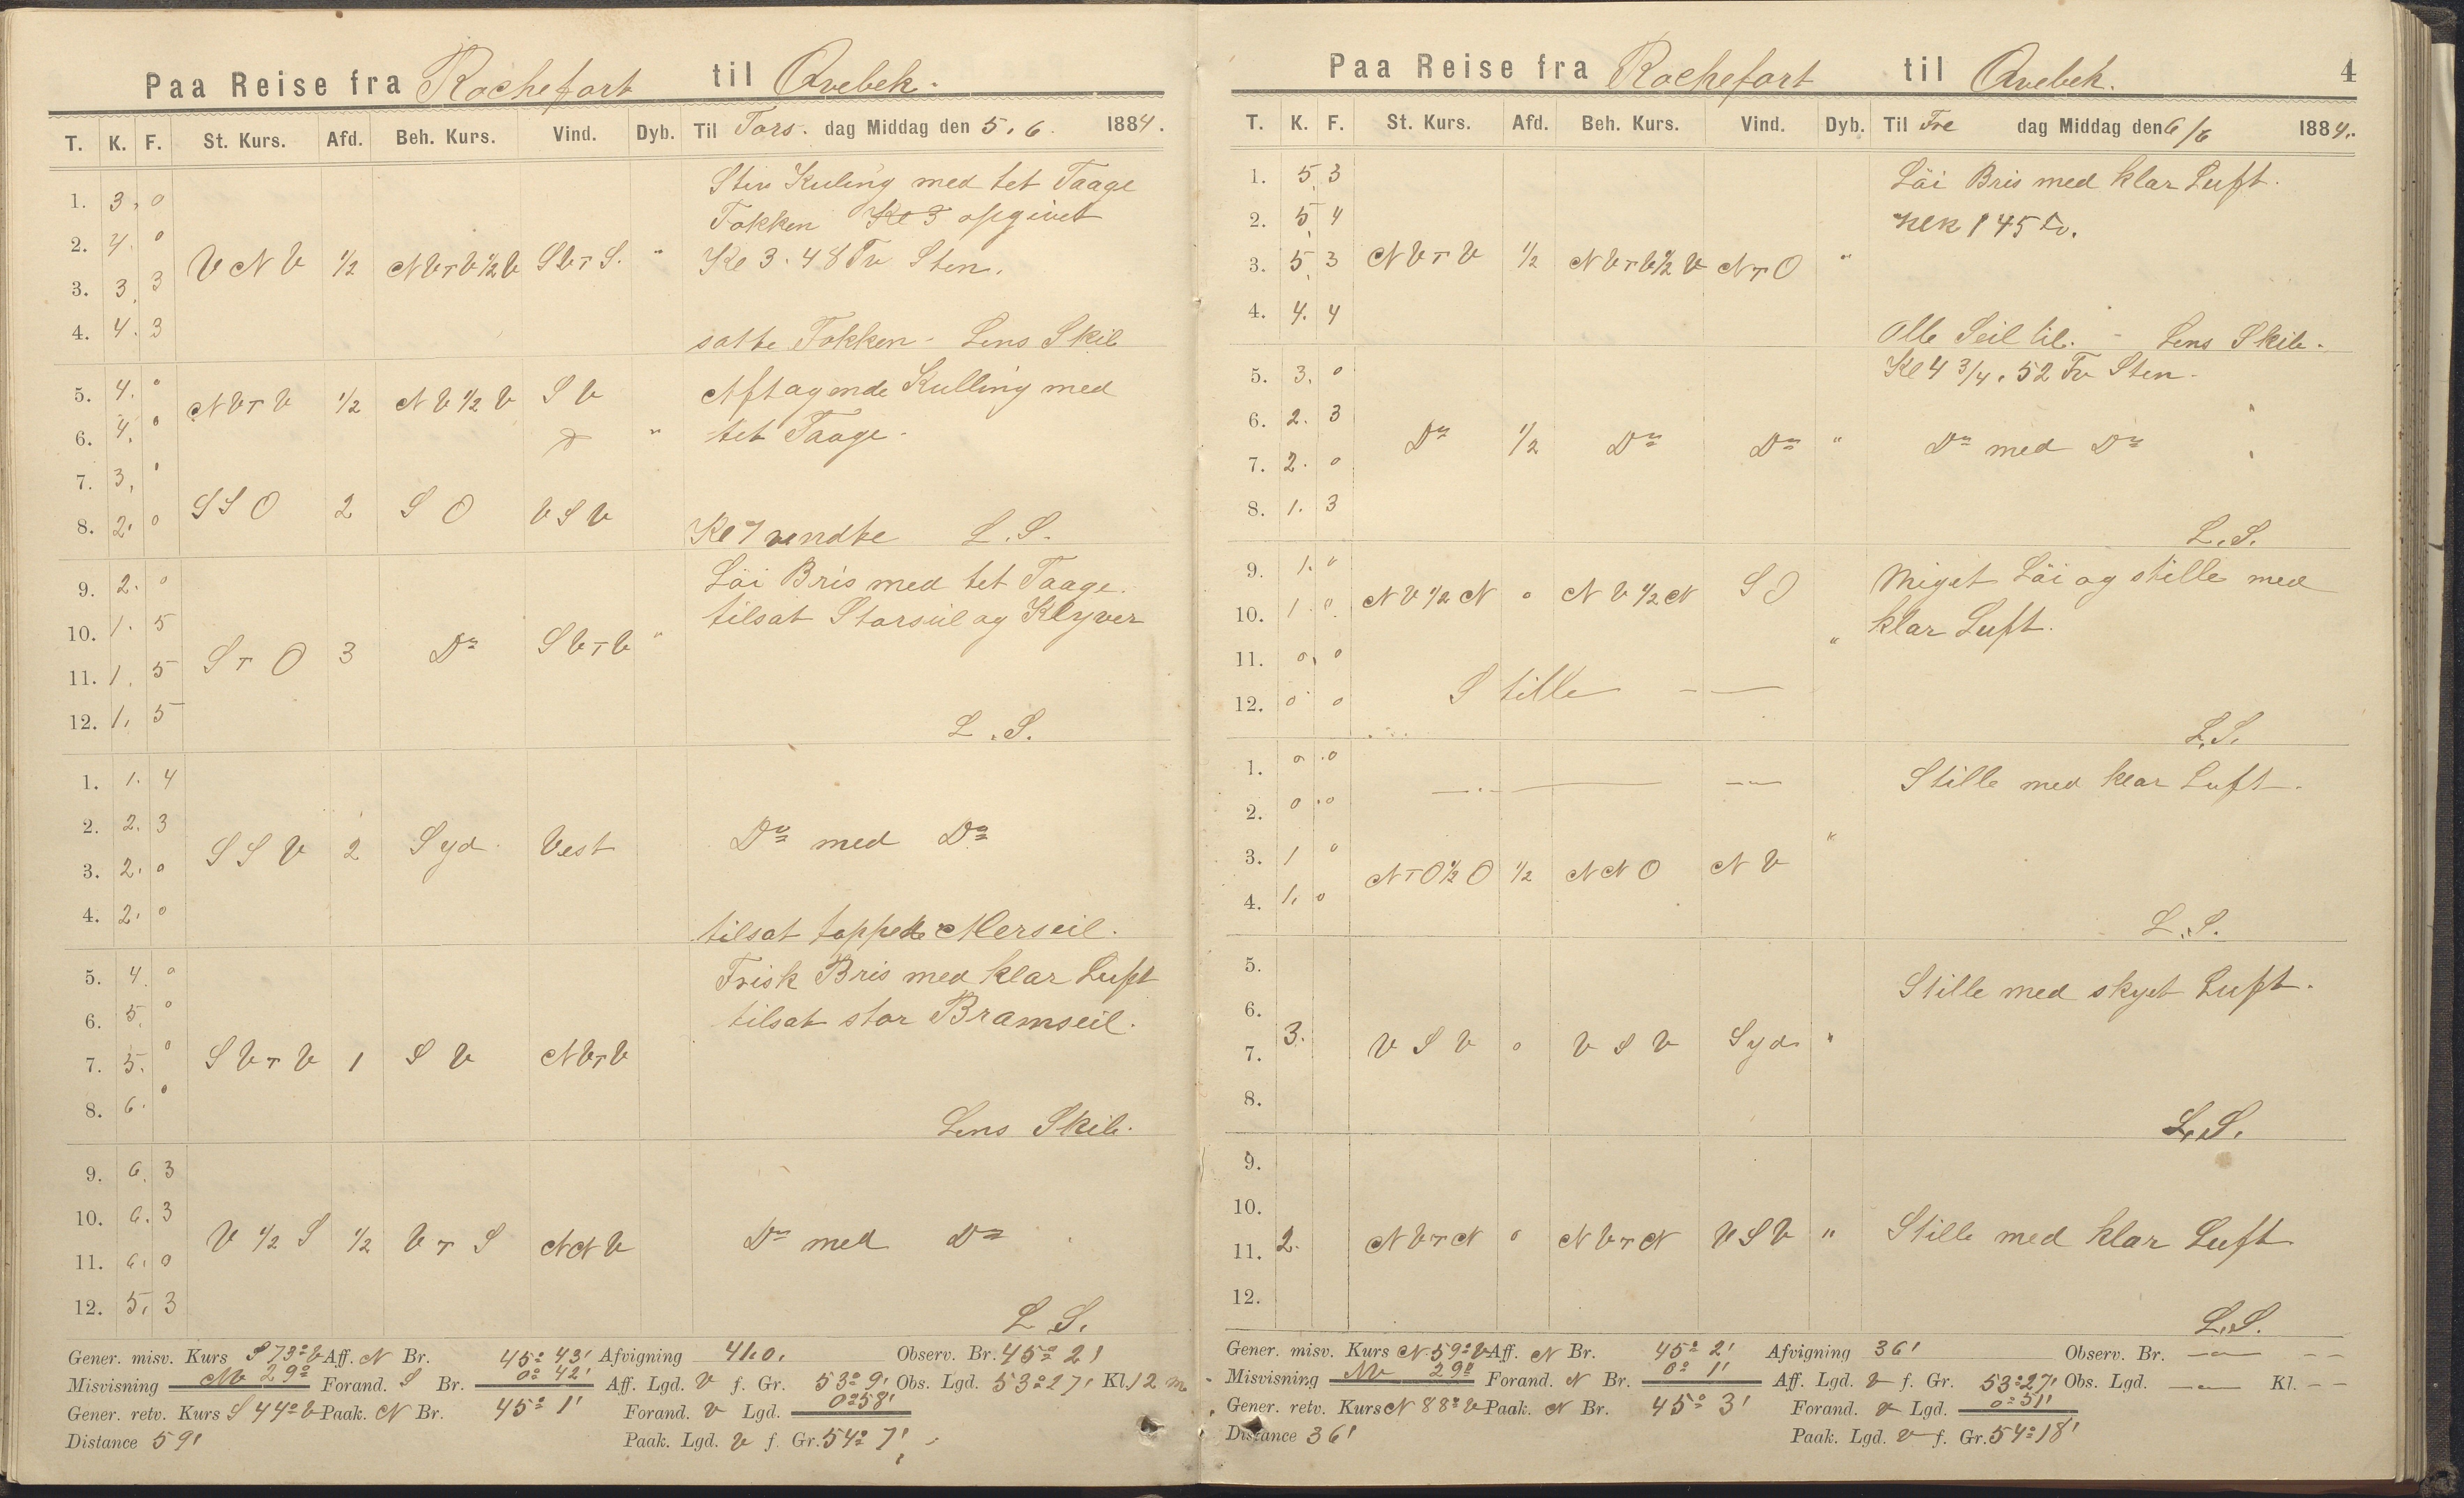 Paa Reise fra Rochefort til Qvebek.
T. K. F. St. Kurs. Afd. Beh. Kurs. Vind. Dyb. Til Tors. dag Middag den 5. 6. 1884.
Stiv Kuling med tet Taage
1. 3, 0
Fokken Kl 3 opgivet
2. 4. 0
V N V 1/2 N V T V 1/2 V S V T S. " Kl 3. 48 Fv Sten.
3. 3, 3
4. 4. 3 satte Fokken - Lens Skib
5. 4. 0 N V T V 1/2 N V 1/2 V S V Aftagende Kulling med
6. 4. 0 " tet Taage.
7. 3, '
S S O 2 S O V S V
8. 2. 0 Kl 7 vendte L. S.
9. 2. 0 Löi Bris med tet Taage.
tilsat Storseil og Klyver
10. 1. 5
S T O 3 Do S V T V "
11. 1. 5
12. 1. 5 L. S.
1. 1. 4
2. 2. 3
S S V 2 Syd Vest Do med Do
3. 2. 0
4. 2. 0 tilsat toppede Merseil.
5. 4 0 Frisk Bris med klar Luft
6. 5. 0 tilsat stor Bramseil.
7. 5. 0 S V T V 1 S V N V T V
8. 6. 0
Lens Skib.
9. 6. 3
10. 6. 3
V 1/2 S 1/2 V T S N N V Do med Do
11. 6. 0
12. 5, 3 L S.
Gener. misv. Kurs S 73° V Aff. N Br. 45° 43' Afvigning 41.0. Observ. Br. 45° 2'
Misvisning NV 29° Forand. S Br. 0° 42' Aff. Lgd. V f. Gr. 53° 9' Obs. Lgd. 53° 27' Kl. 12 m
Gener. retv. Kurs S 44° V Paak. N Br. 45° 1' Forand. V Lgd. 0° 58'
Distance 59' Paak. Lgd. V f. Gr. 54° 7'
Paa Reise fra Rochefort til Qvebek. 4
T. K. F. St. Kurs. Afd. Beh. Kurs. Vind. Dyb. Til Fre dag Middag den 6/6 1884.
1. 5, 3 Löi Bris med klar Luft.
2. 5, 4
3. 5, 3 N V T V 1/2 N V T V 1/2 V N T O "
4. 4. 4 Olle Seil til. - Lens Skib.
5. 3. 0 Kl 4 3/4. 52 Fv Sten.
6. 2. 3
Do 1/2 Do Do " Do med Do
7. 2. 0
8. 1. 3
L. S.
9. 1. " N V 1/2 N 0 N V 1/2 N S O Meget Löi og stille med
10. 1. 0 " klar Luft.
11. 0, 0
12. 0 0 Stille — —
L. S.
1. 0 . 0 Stille med klar Luft.
2. 0 . 0
3. 1 0 "
N T O 1/2 O 1/2 N N O N V
4. 1. 0
L. S.
5.
Stille med skyet Luft.
6.
3. V S V 0 V S V Syd "
7.
8.
L. S.
9.
10.
11. 2. N V T N 0 N V T N V S V " Stille med klar Luft
12.
L. S.
Gener. misv. Kurs N 59° V Aff. N Br. 45° 2' Afvigning 36' Observ. Br. — - -
Misvisning NV 29° Forand. N Br. 0° 1' Aff. Lgd. V f. Gr. 53° 27' Obs. Lgd. — Kl. - -
Gener. retv. Kurs N 88° V Paak. N Br. 45° 3' Forand. V Lgd. 0° 51'
Distance 36' Paak. Lgd. V f. Gr. 54° 18'